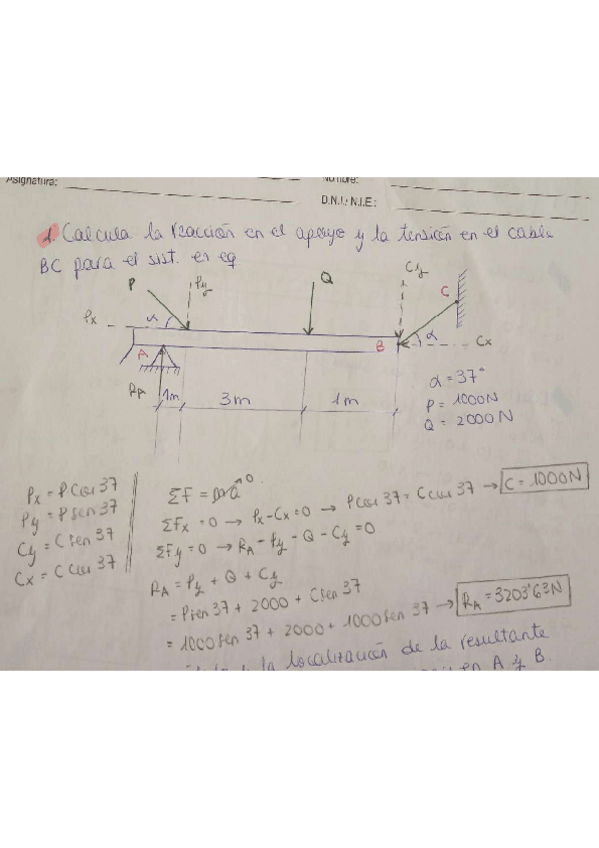 Asignatura:
Nombre:
D.N.I.: N.I.E.:
1. Calcula la reacción en el apoyo y la tensión en el cable
BC para el sist. en eq
P
Py
Q
Cy
C
Px
α
A
B
α
Cx
RA
1m
3m
1m
α = 37°
P = 1000N
Q = 2000N
Px = P cos 37
Py = P sen 37
Cy = C sen 37
Cx = C cos 37
ΣF = ma 0
ΣFx = 0 → Px - Cx = 0 → P cos 37 = C cos 37 → C = 1000N
ΣFy = 0 → RA - Py - Q - Cy = 0
RA = Py + Q + Cy
= P sen 37 + 2000 + C sen 37
= 1000 sen 37 + 2000 + 1000 sen 37 → RA = 3203'63N
y la localización de la resultante
en A y B.